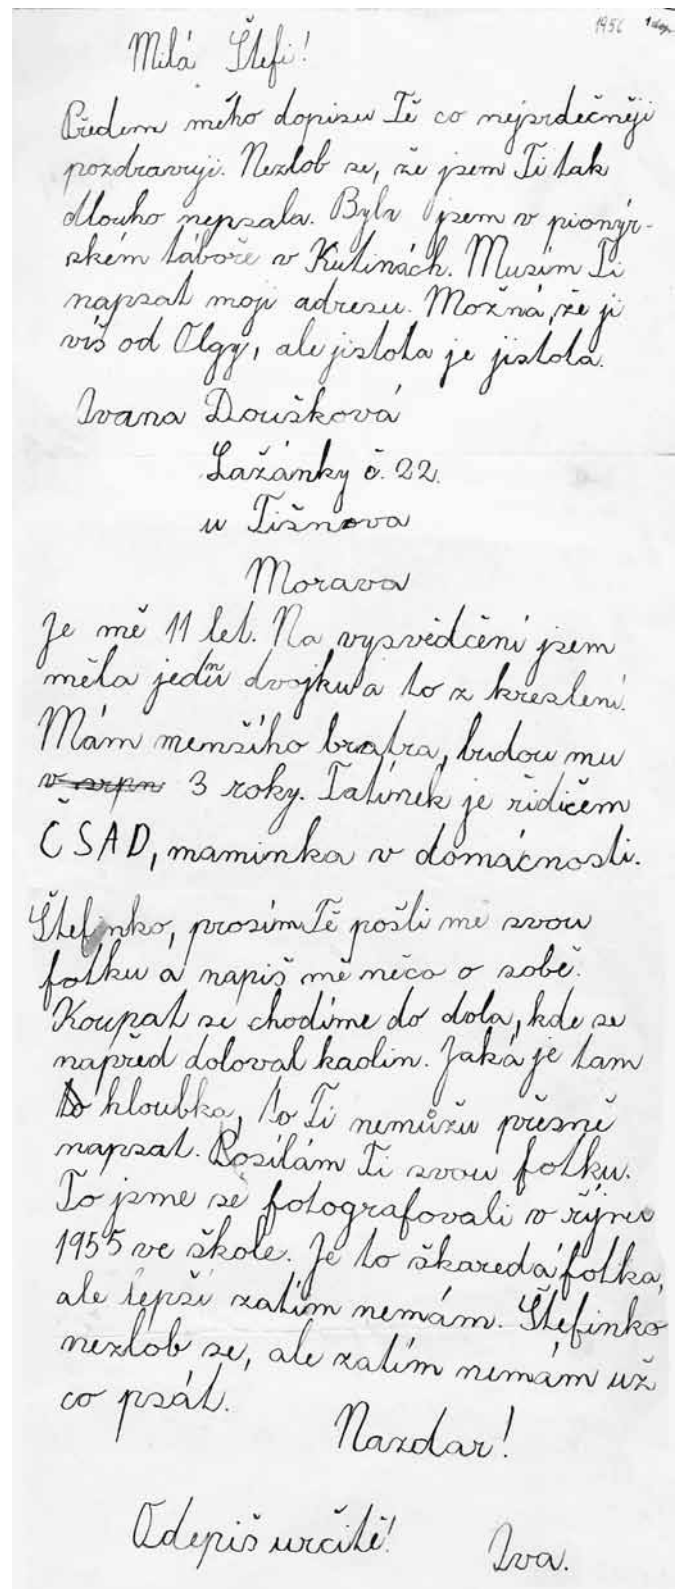 1956 1 dop.
Milá Štefi!
Předem mého dopisu Tě co nejsrdečněji
pozdravuji. Nezlob se, že jsem Ti tak
dlouho nepsala. Byla jsem v pionýr-
ském táboře v Kutinách. Musím Ti
napsat moji adresu. Možná, že ji
víš od Olgy, ale jistota je jistota.
Ivana Doušková
Lažánky č. 22.
u Tišnova
Morava
Je mě 11 let. Na vysvědčení jsem
měla jednu dvojku a to z kreslení.
Mám menšího bratra, budou mu
v srpn 3 roky. Tatínek je řidičem
ČSAD, maminka v domácnosti.
Štefinko, prosím Tě pošli mě svou
fotku a napiš mě něco o sobě.
Koupat se chodíme do dola, kde se
napřed doloval kaolin. Jaká je tam
to hloubka, to Ti nemůžu přesně
napsat. Posílám Ti svou fotku.
To jsme se fotografovali v říjnu
1955 ve škole. Je to škaredá fotka,
ale lepší zatím nemám. Štefinko
nezlob se, ale zatím nemám už
co psát.
Nazdar!
Odepiš určitě!
Iva.